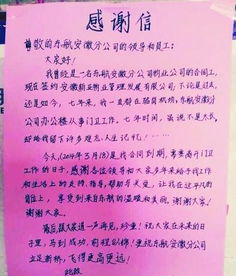 感谢信
尊敬的东航安徽分公司的领导和员工：
大家好！
我曾经是一名东航安徽分公司物业公司的合同工，
现在签约安徽新亚物业管理发展有限公司，不论是过去，
还是如今，七年来，我一直都在骆岗机场，东航安徽分
公司办公楼从事门卫工作。七年时间，虽说不是太长，
却给我留下许多难忘、人生记忆！……
今天，(2014年3月18)是我合同到期，需要离开门卫
工作的日子，感谢各位领导和大家多年来给予我工作
和生活上的支持、指导、帮助与关爱，让我在这平凡的
岗位上，享受到来自东航的温暖和友谊，谢谢大家！
谢谢大家。
最后，跟大家道一声再见，珍重！祝大家在未来的日
子里，马到成功，前程似锦！更祝东航安徽分公司
立足新桥，飞得更高更远！
此致